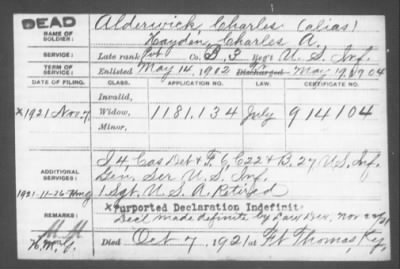 DEAD
NAME OF SOLDIER: Alderwick, Charles (alias)
Hayden, Charles A.
SERVICE: Late rank Pvt Co. B, 3 Reg't U. S. Inf.
TERM OF SERVICE: Enlisted May 14, 1902 Discharged May 19 04
DATE OF FILING. CLASS. APPLICATION NO. LAW. CERTIFICATE NO.
Invalid,
x1921 Nov. 7 Widow, 1181.134 July 914104
Minor,
ADDITIONAL SERVICES: I 4, Cas Det & F, G, C 22 & B, 27 U.S. Inf.
Gen. Ser U. S. Inf.
1921-11-26 1 Sgt. U. S. A. Retired
REMARKS: x Purported Declaration Indefinit
Decl made definite by Nov
Died Oct 7, 1921 at Ft Thomas, Ky,